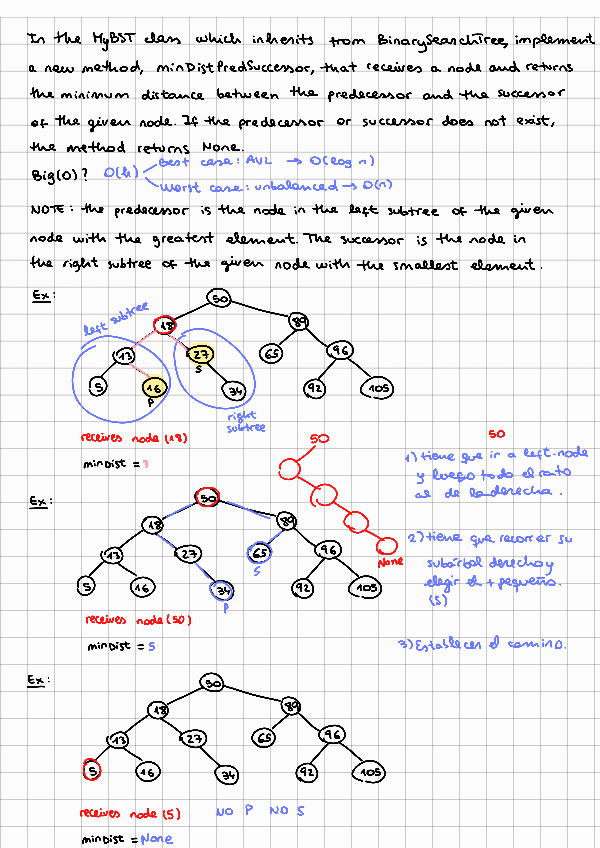 In the MyBST class which inherits from BinarySearchTree, implement
a new method, minDistPredSuccessor, that receives a node and returns
the minimum distance between the predecessor and the successor
of the given node. If the predecessor or successor does not exist,
the method returns None.
Big(O)? O(h)
Best case: AVL → O(log n)
Worst case: unbalanced → O(n)
NOTE: the predecessor is the node in the left subtree of the given
node with the greatest element. The successor is the node in
the right subtree of the given node with the smallest element.
Ex:
50
left subtree
18
89
13
27
S
65
96
5
16
P
34
92
105
right
subtree
receives node (18)
minDist = 3
50
None
50
1) tiene que ir a left.node
y luego todo el rato
al de la derecha.
2) tiene que recorrer su
subárbol derecho y
elegir el + pequeño.
(S)
3) Establecer el camino.
Ex:
50
18
89
13
27
65
S
96
5
16
34
P
92
105
receives node (50)
minDist = 5
Ex:
50
18
89
13
27
65
96
5
16
34
92
105
receives node (5) NO P NO S
minDist = None